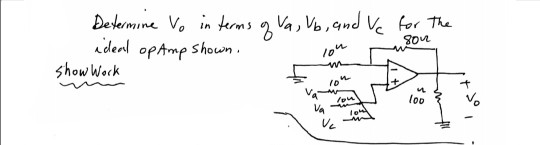 Determine Vo in terms of Va, Vb, and Vc for the
ideal opAmp shown.
Show Work
80Ω
10Ω
-
+
10Ω
Va
10Ω
Va
10Ω
Vc
100Ω
+
Vo
-